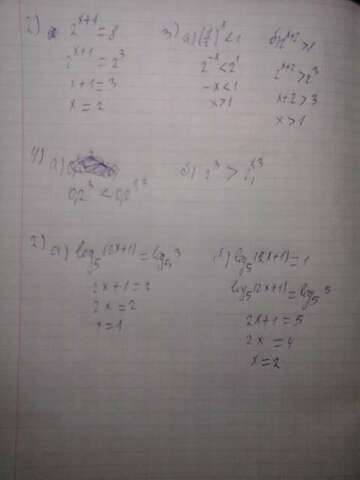 2) 2^{x+1} = 8
2^{x+1} = 2^3
x+1 = 3
x = 2
3) а) (1/2)^x < 1
2^{-x} < 2^1
-x < 1
x > 1
б) 2^{x+2} > 1
2^{x+2} > 2^3
x+2 > 3
x > 1
4) а)
б)
2) а) log_5 (2x+1) = log_5 3
2x+1 = 3
2x = 2
x = 1
б) log_5 (2x+1) = 1
log_5 (2x+1) = log_5 5
2x+1 = 5
2x = 4
x = 2